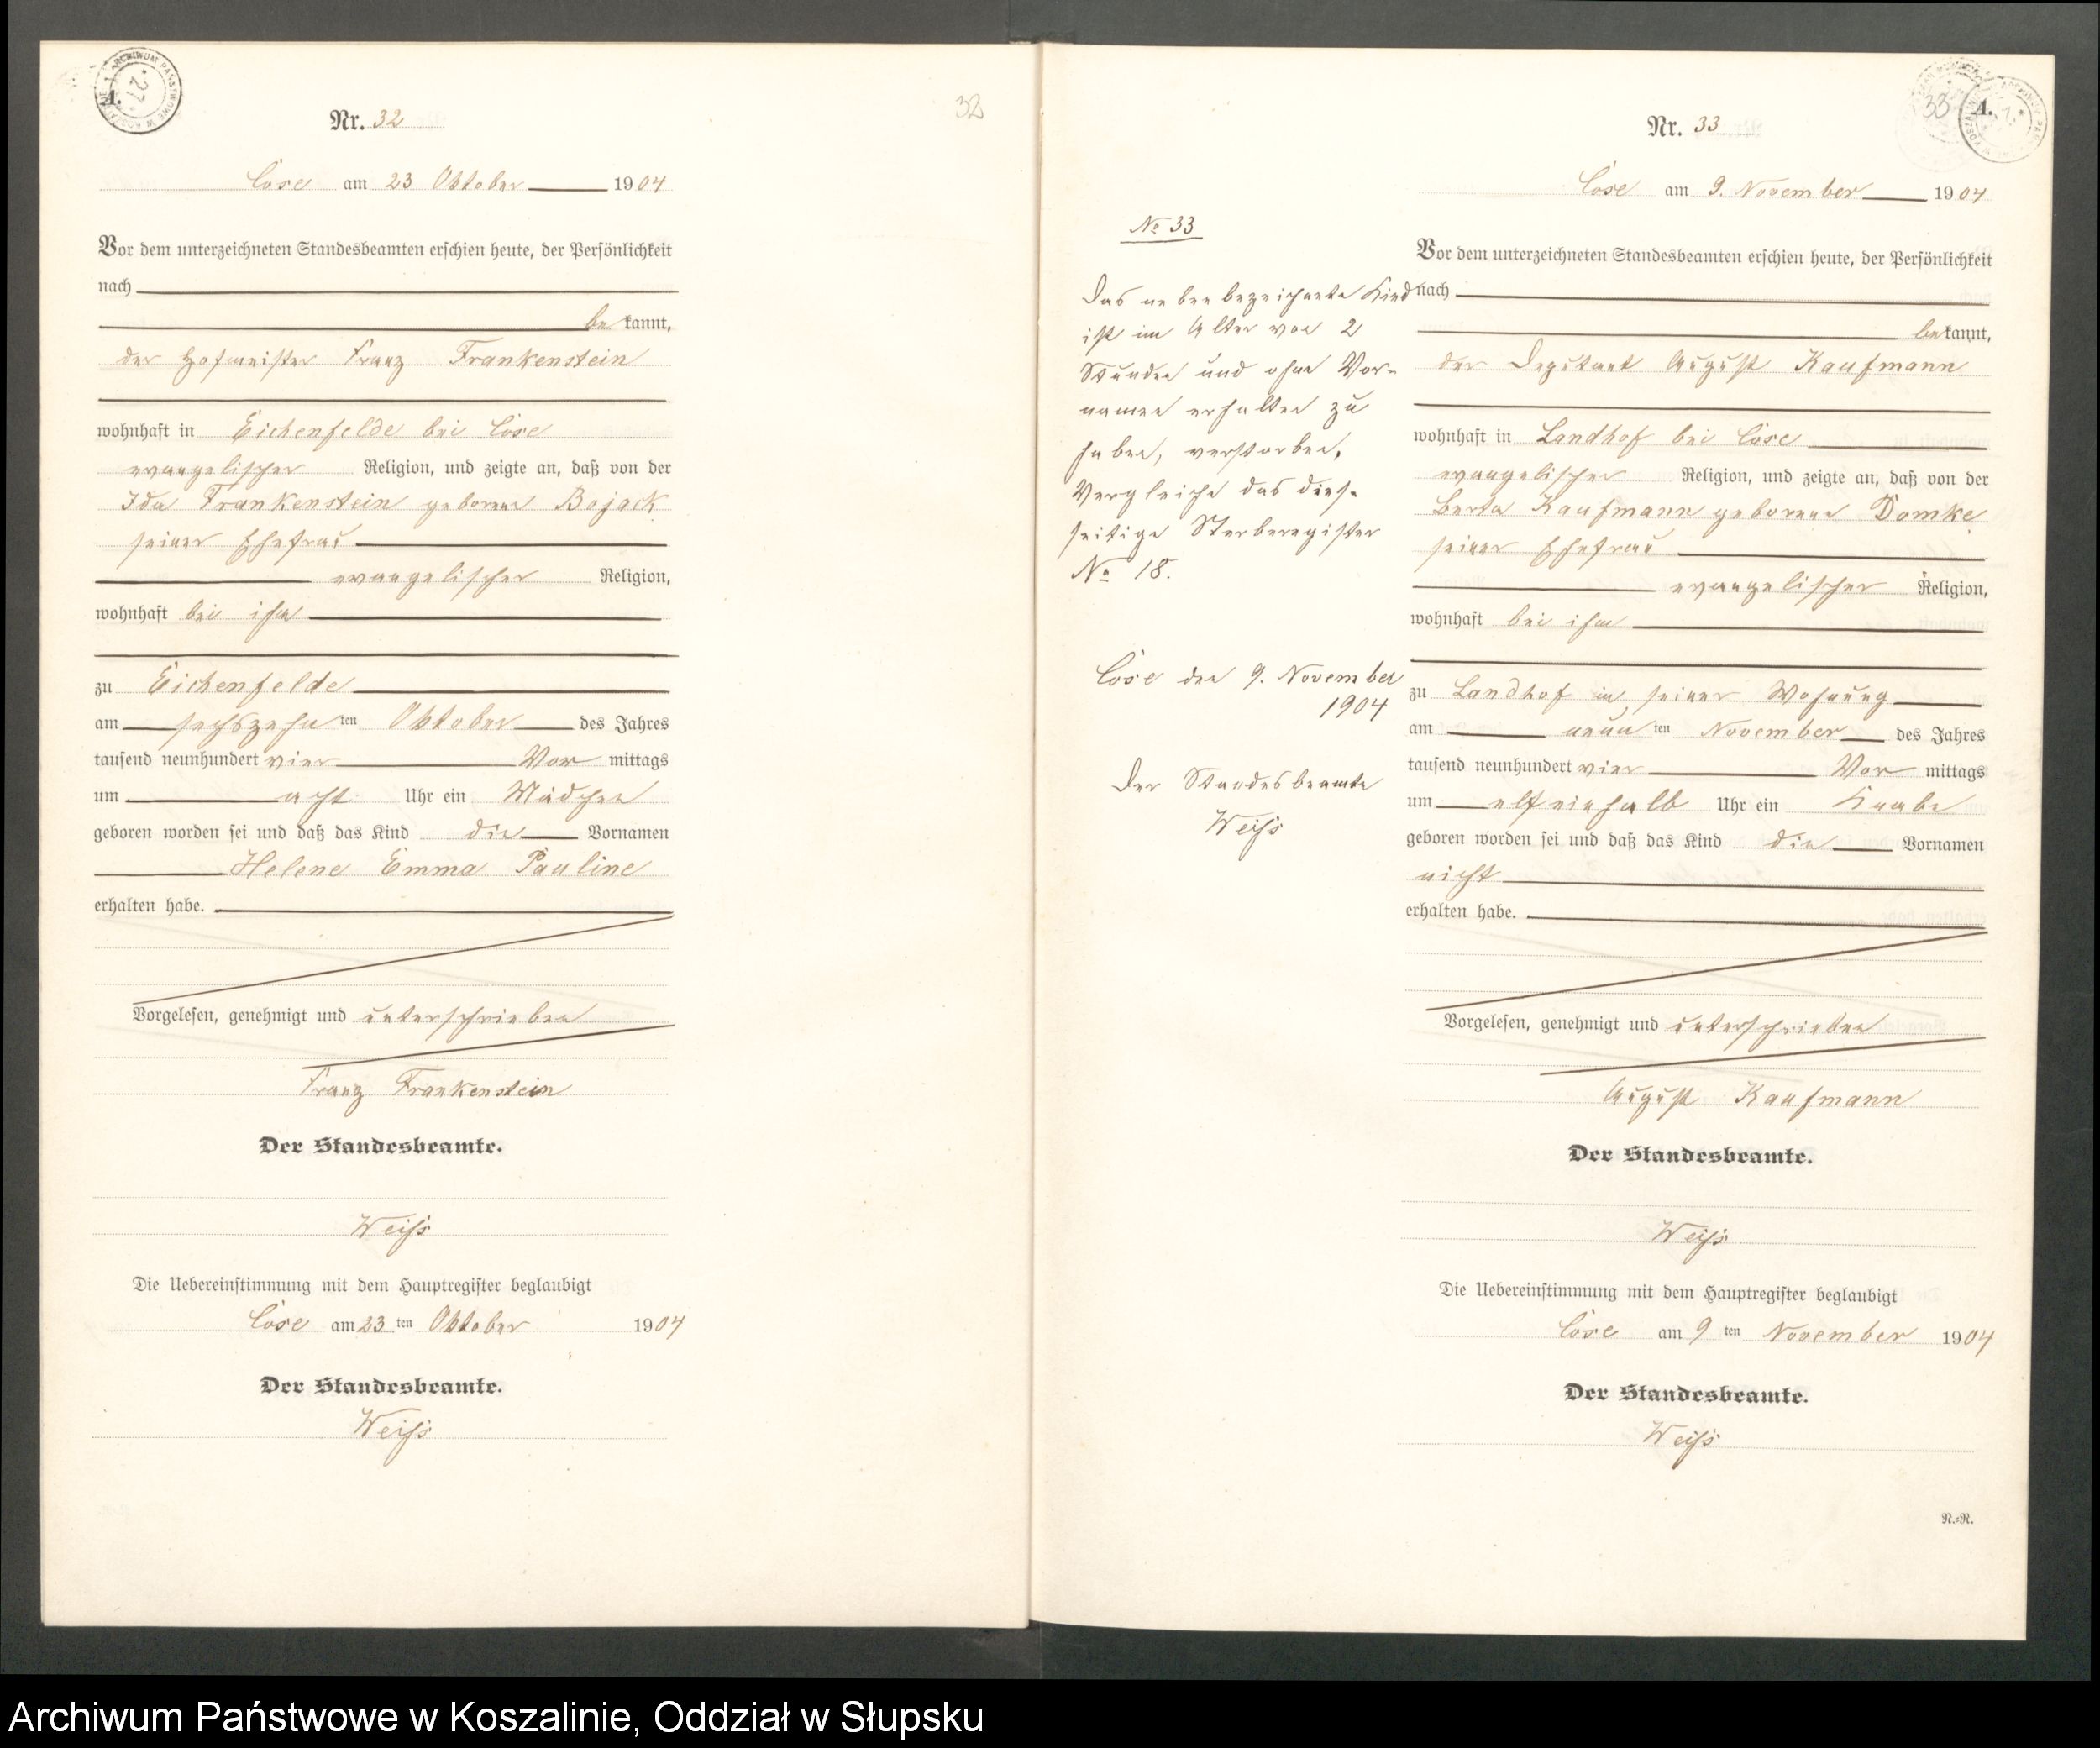 A.
Nr. 32
32
Cöse am 23 Oktober 1904
Vor dem unterzeichneten Standesbeamten erschien heute, der Persönlichkeit
nach
be kannt,
der Hofmeister Franz Frankenstein
wohnhaft in Eichenfelde bei Cöse
evangelischer Religion, und zeigte an, daß von der
Ida Frankenstein geborene Bojack
seiner Ehefrau
evangelischer Religion,
wohnhaft bei ihm
zu Eichenfelde
am sechszehn ten Oktober des Jahres
tausend neunhundert vier Vor mittags
um acht Uhr ein Mädchen
geboren worden sei und daß das Kind die Vornamen
Helene Emma Pauline
erhalten habe.
Vorgelesen, genehmigt und unterschrieben
Franz Frankenstein
Der Standesbeamte.
Weiß
Die Uebereinstimmung mit dem Hauptregister beglaubigt
Cöse am 23 ten Oktober 1904
Der Standesbeamte.
Weiß
33 A.
Nr. 33
Cöse am 9. November 1904
No 33
Das neben bezeichnete Kind
ist im Alter von 2
Stunden und ohne Vor-
namen erhalten zu
haben, verstorben.
Vergleiche das dies-
seitige Sterberegister
No 18.
Cöse den 9. November
1904
Der Standesbeamte
Weiß
Vor dem unterzeichneten Standesbeamten erschien heute, der Persönlichkeit
nach
be kannt,
der Deputant August Kaufmann
wohnhaft in Landhof bei Cöse
evangelischer Religion, und zeigte an, daß von der
Berta Kaufmann geborene Domke
seiner Ehefrau
evangelischer Religion,
wohnhaft bei ihm
zu Landhof in seiner Wohnung
am neun ten November des Jahres
tausend neunhundert vier Vor mittags
um elfeinhalb Uhr ein Knabe
geboren worden sei und daß das Kind die Vornamen
nicht
erhalten habe.
Vorgelesen, genehmigt und unterschrieben
August Kaufmann
Der Standesbeamte.
Weiß
Die Uebereinstimmung mit dem Hauptregister beglaubigt
Cöse am 9 ten November 1904
Der Standesbeamte.
Weiß
N.=R.
Archiwum Państwowe w Koszalinie, Oddział w Słupsku